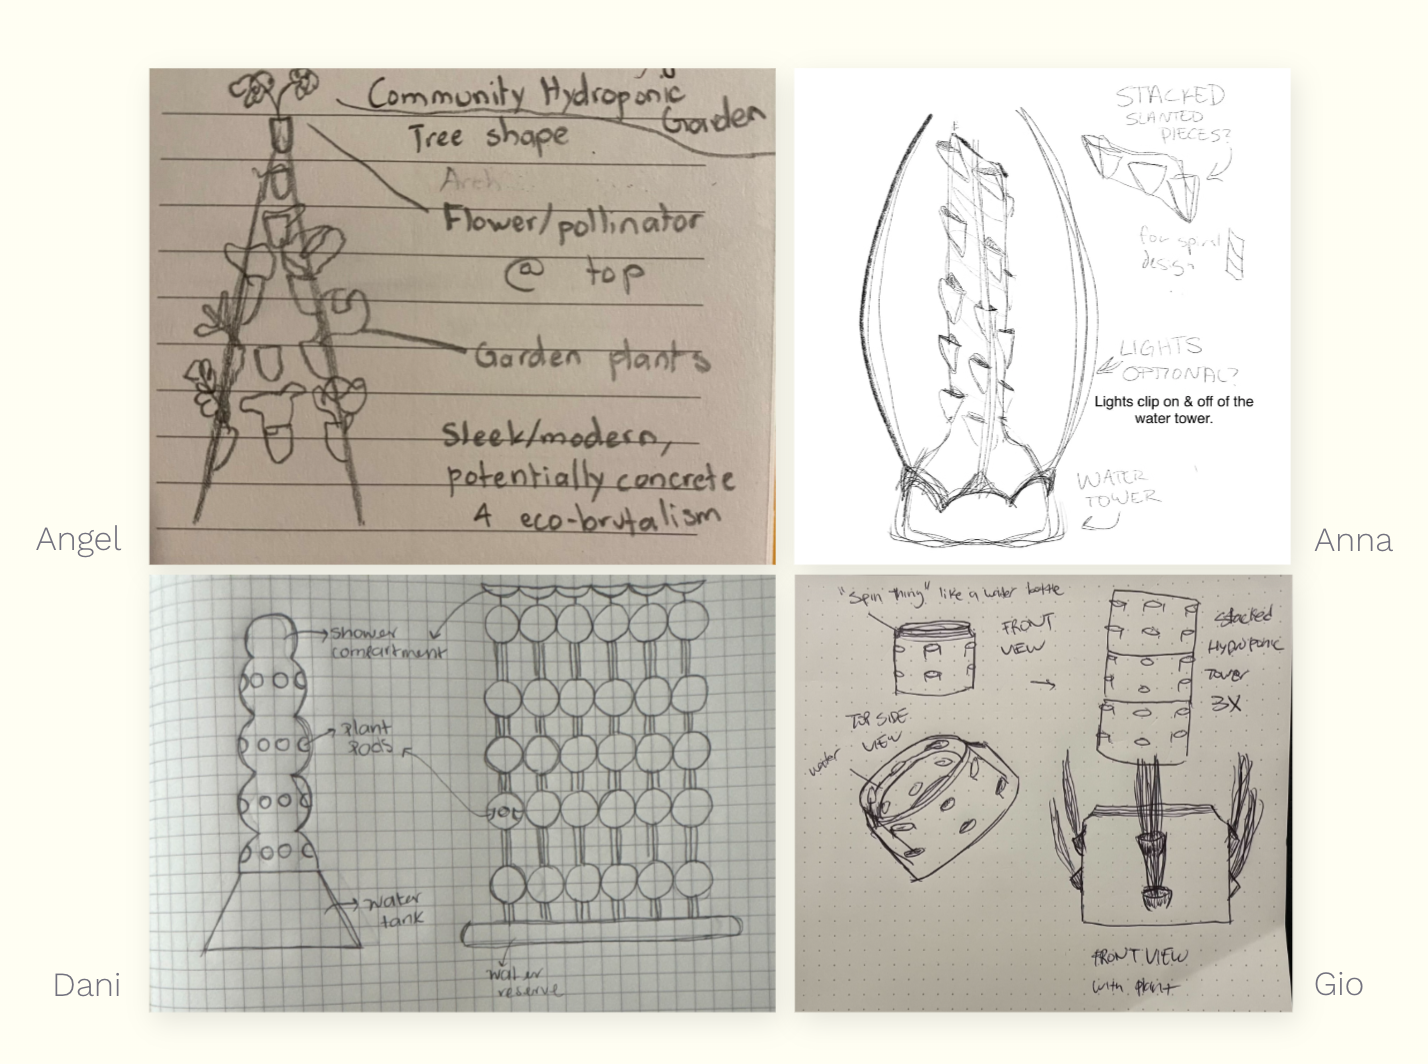 Community Hydroponic
Garden
Tree shape
Arch
Flower/pollinator
@ top
Garden plants
Sleek/modern,
potentially concrete
& eco-brutalism
Angel
STACKED
SLANTED
PIECES?
for spiral
design
LIGHTS
OPTIONAL?
Lights clip on & off of the
water tower.
WATER
TOWER
Anna
shower
compartment
plant
pods
water
tank
water
reserve
Dani
"Spin thing" like a water bottle
FRONT
VIEW
Stacked
Hydroponic
Tower
3X
TOP SIDE
VIEW
water
FRONT VIEW
with plant
Gio